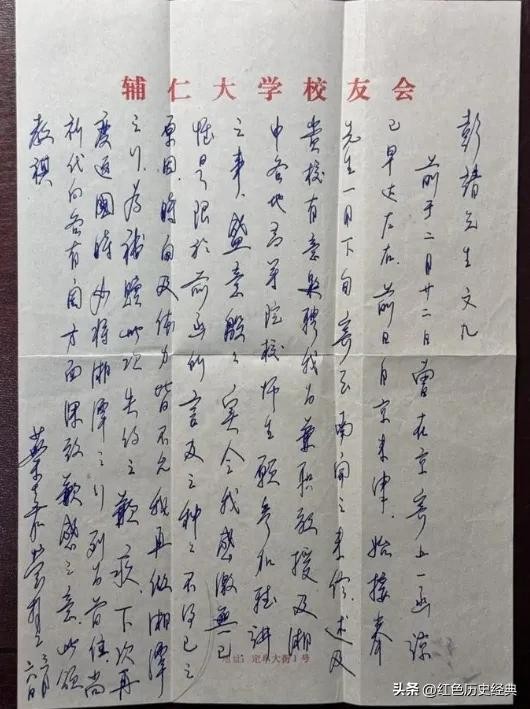 辅仁大学校友会
彭靖先生文几
前于二月廿二日曾在京寄上一函谅
已早达左右前日自京来津始接奉
先生一月下旬寄至南开之来信述及
贵校有意兼聘我为兼职教授及湘
中各地高等院校师生愿参加听讲
之事盛意殷殷实令我感激无已
惟是限于前函所言及之种种不得已之
原因时间及体力皆不允我再做湘潭
之行为补赎此次失约之歉疚下次再
度返国时必将湘潭之行列为首站尚
祈代向各有关方面深致歉感之意此颂
教祺
叶嘉莹
三月
六日
地址：定阜大街1号
头条 @红色历史经典